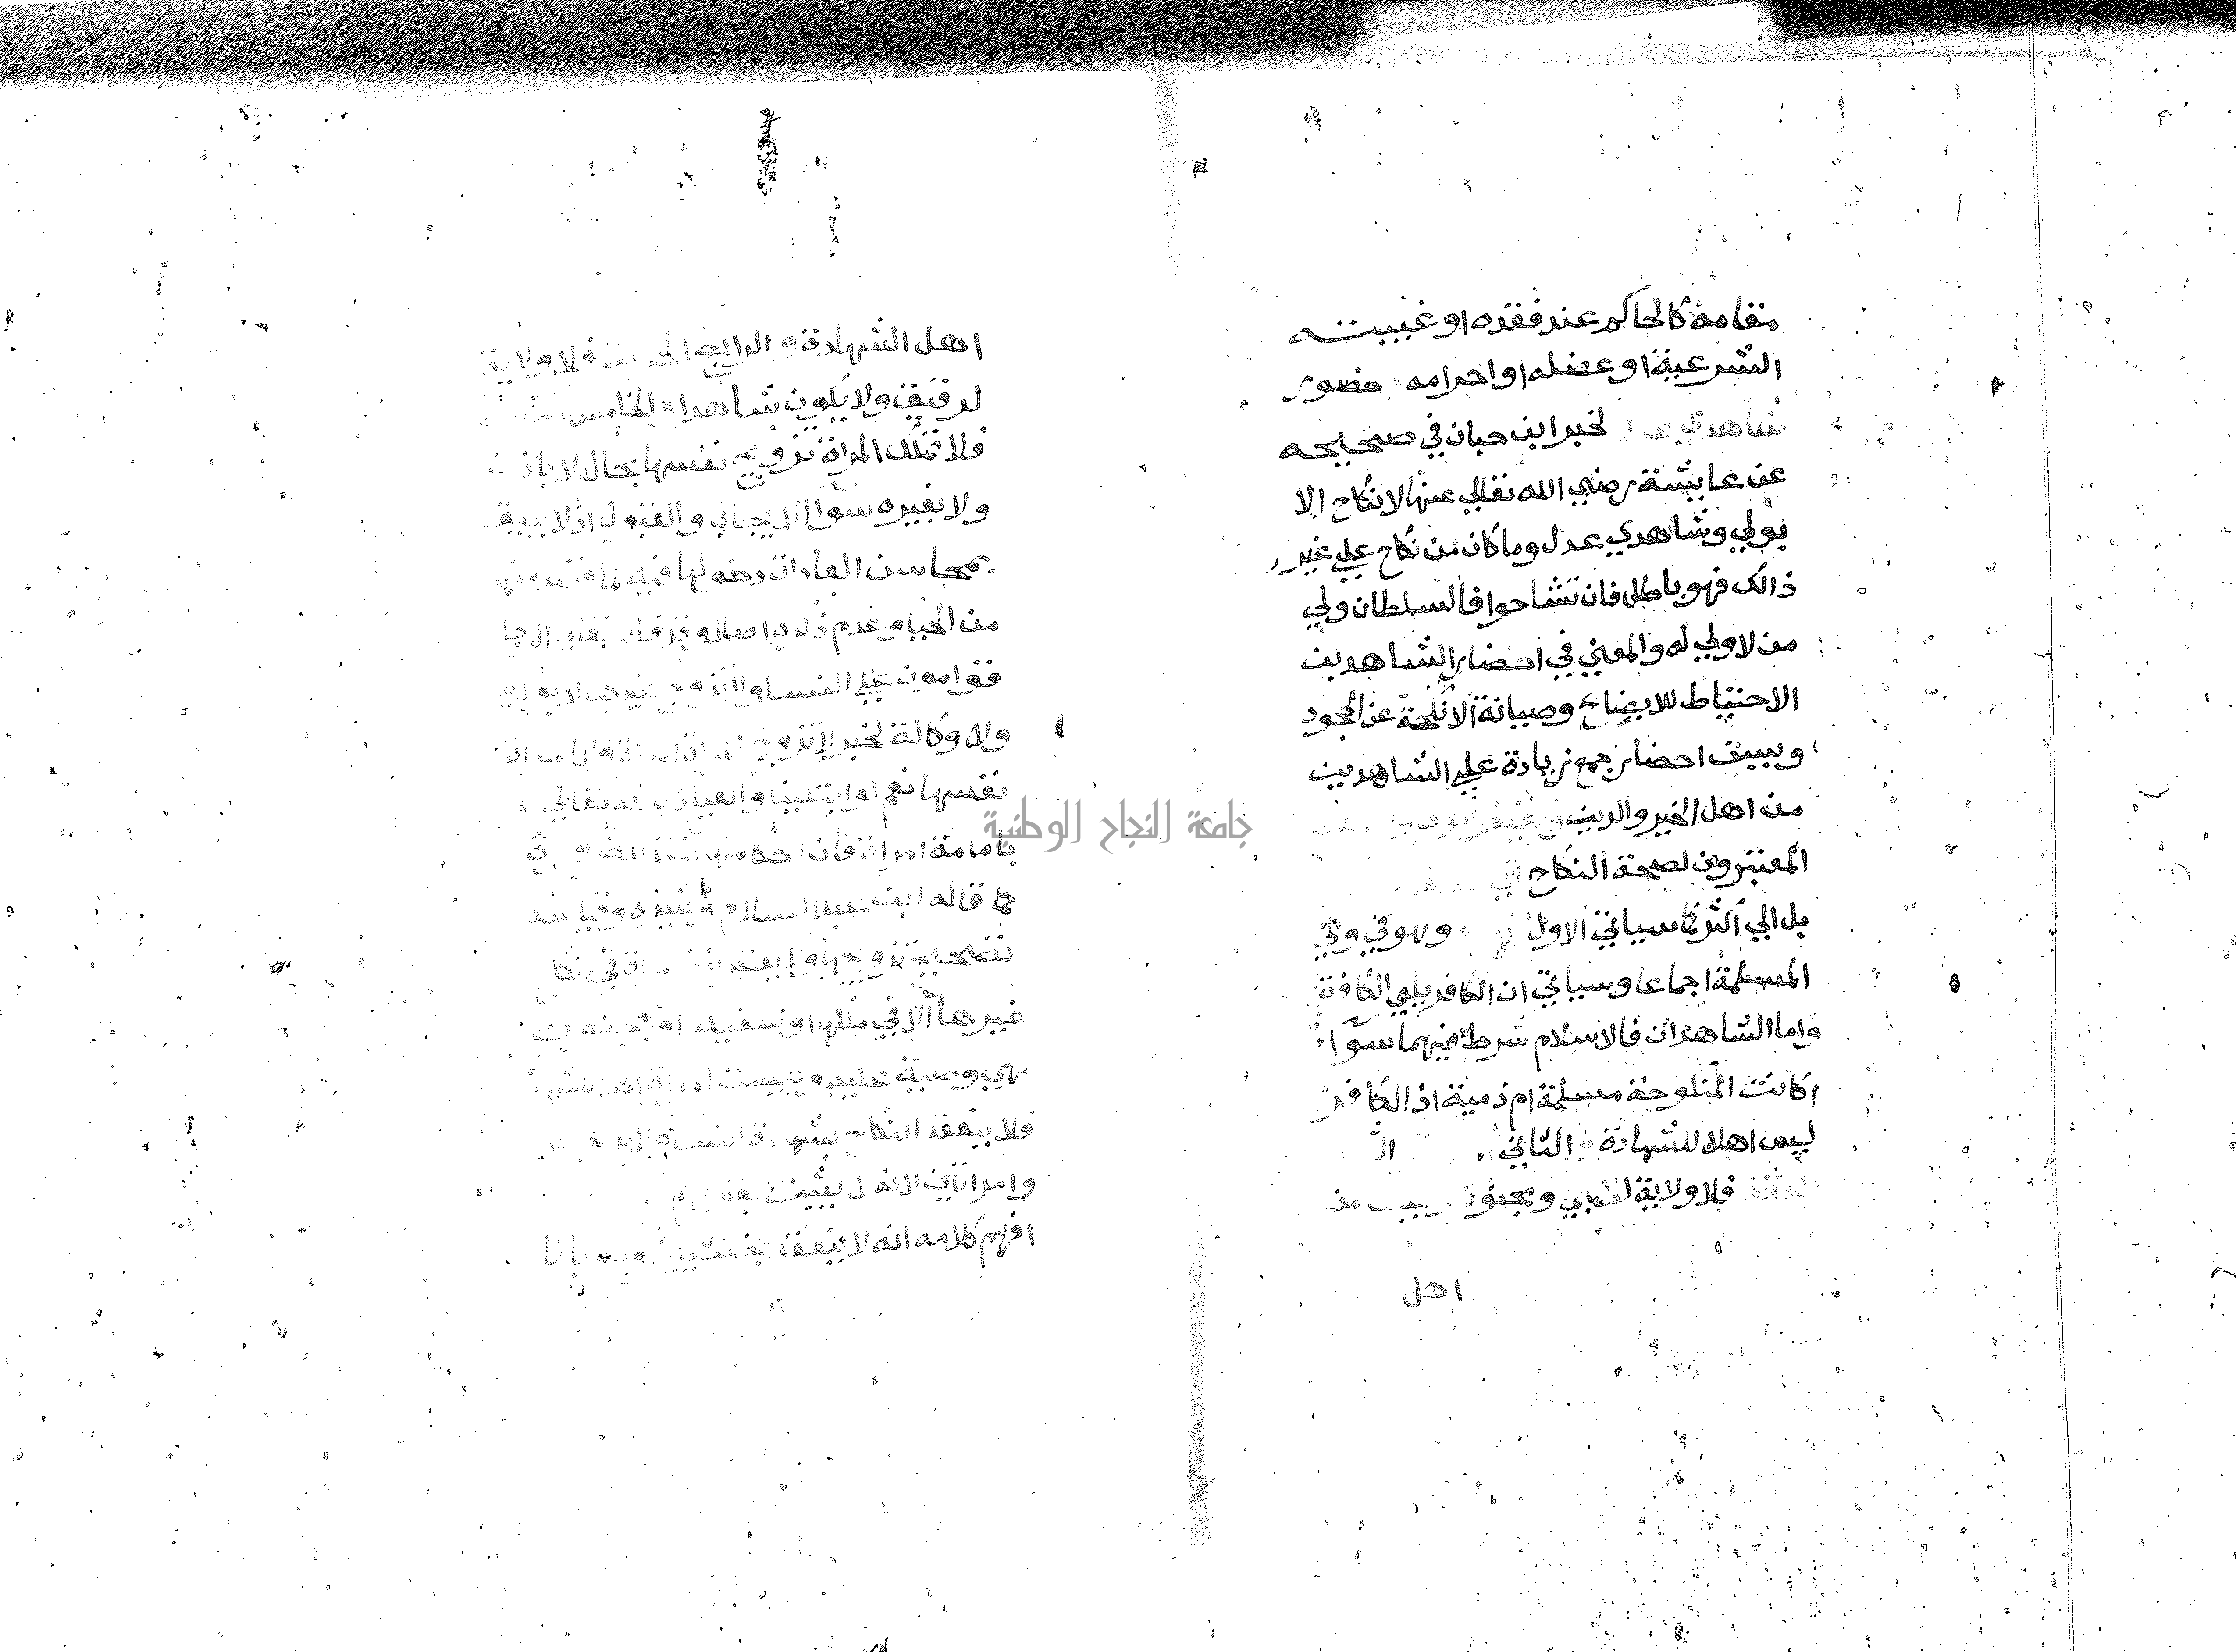 مقامه كالحاكم عند فقده او غيبته
الشرعية او عضله او احرامه حضور
شاهدي لخبر ابن حبان في صحيحه
عن عايشة رضي الله تعالي عنها لا نكاح الا
بولي وشاهدي عدل وما كان من نكاح علي غير
ذالك فهو باطل فان تشاحوا فالسلطان ولي
من لا ولي له والمعني في احضار الشاهدين
الاحتياط للابضاع وصيانة الانكحة عن الجحود
ويسن احضار جمع زيادة علي الشاهدين
من اهل الخير والدين
المعتبرون لصحة النكاح
بل الي اكثر كما سياتي الاول وهو في ولي
المسلمة اجماعا وسياتي ان الكافر يلي الكافرة
واما الشاهدان فالاسلام شرط فيهما سواء
اكانت المنكوحة مسلمة ام ذمية اذ الكافر
ليس اهلا للشهادة الثاني
فلا ولاية لصبي ومجنون من
اهل
اهل الشهادة والرابع الحرية فلا ولاية
لرقيق ولا يكون شاهدا والخامس
فلا تملك المراة تزويج نفسها بحال لا باذن
ولا بغيره سوا الايجاب والقبول اذ لا يليق
بمحاسن العادات دخولها فيه لما قصد منها
من الحيا وعدم ذكره اصلا وقد قال تعالي الرجال
قوامون علي النسا ولا تزوج غيرها لا بولاية
ولا وكالة لخبر لا تزوج المراة المراة ولا المراة
نفسها نعم لو ابتلينا والعياذ بالله تعالي
بامامة امراة فان احكامها تنفذ للضرورة
كما قاله ابن عبد السلام وغيره وقياسه
تصحيح تزويجها ولا يعتبر اذن المراة في نكاح
غيرها الا في ملكها او سفيه او مجنون
هي وصية عليه وليست المراة اهلا للشهادة
فلا ينعقد النكاح بشهادة النساء ولا برجل
وامراتين لانه لا يثبت بقولهم
افهم كلامه انه لا ينعقد بخنثيين ولو بانا
جامعة النجاح الوطنية